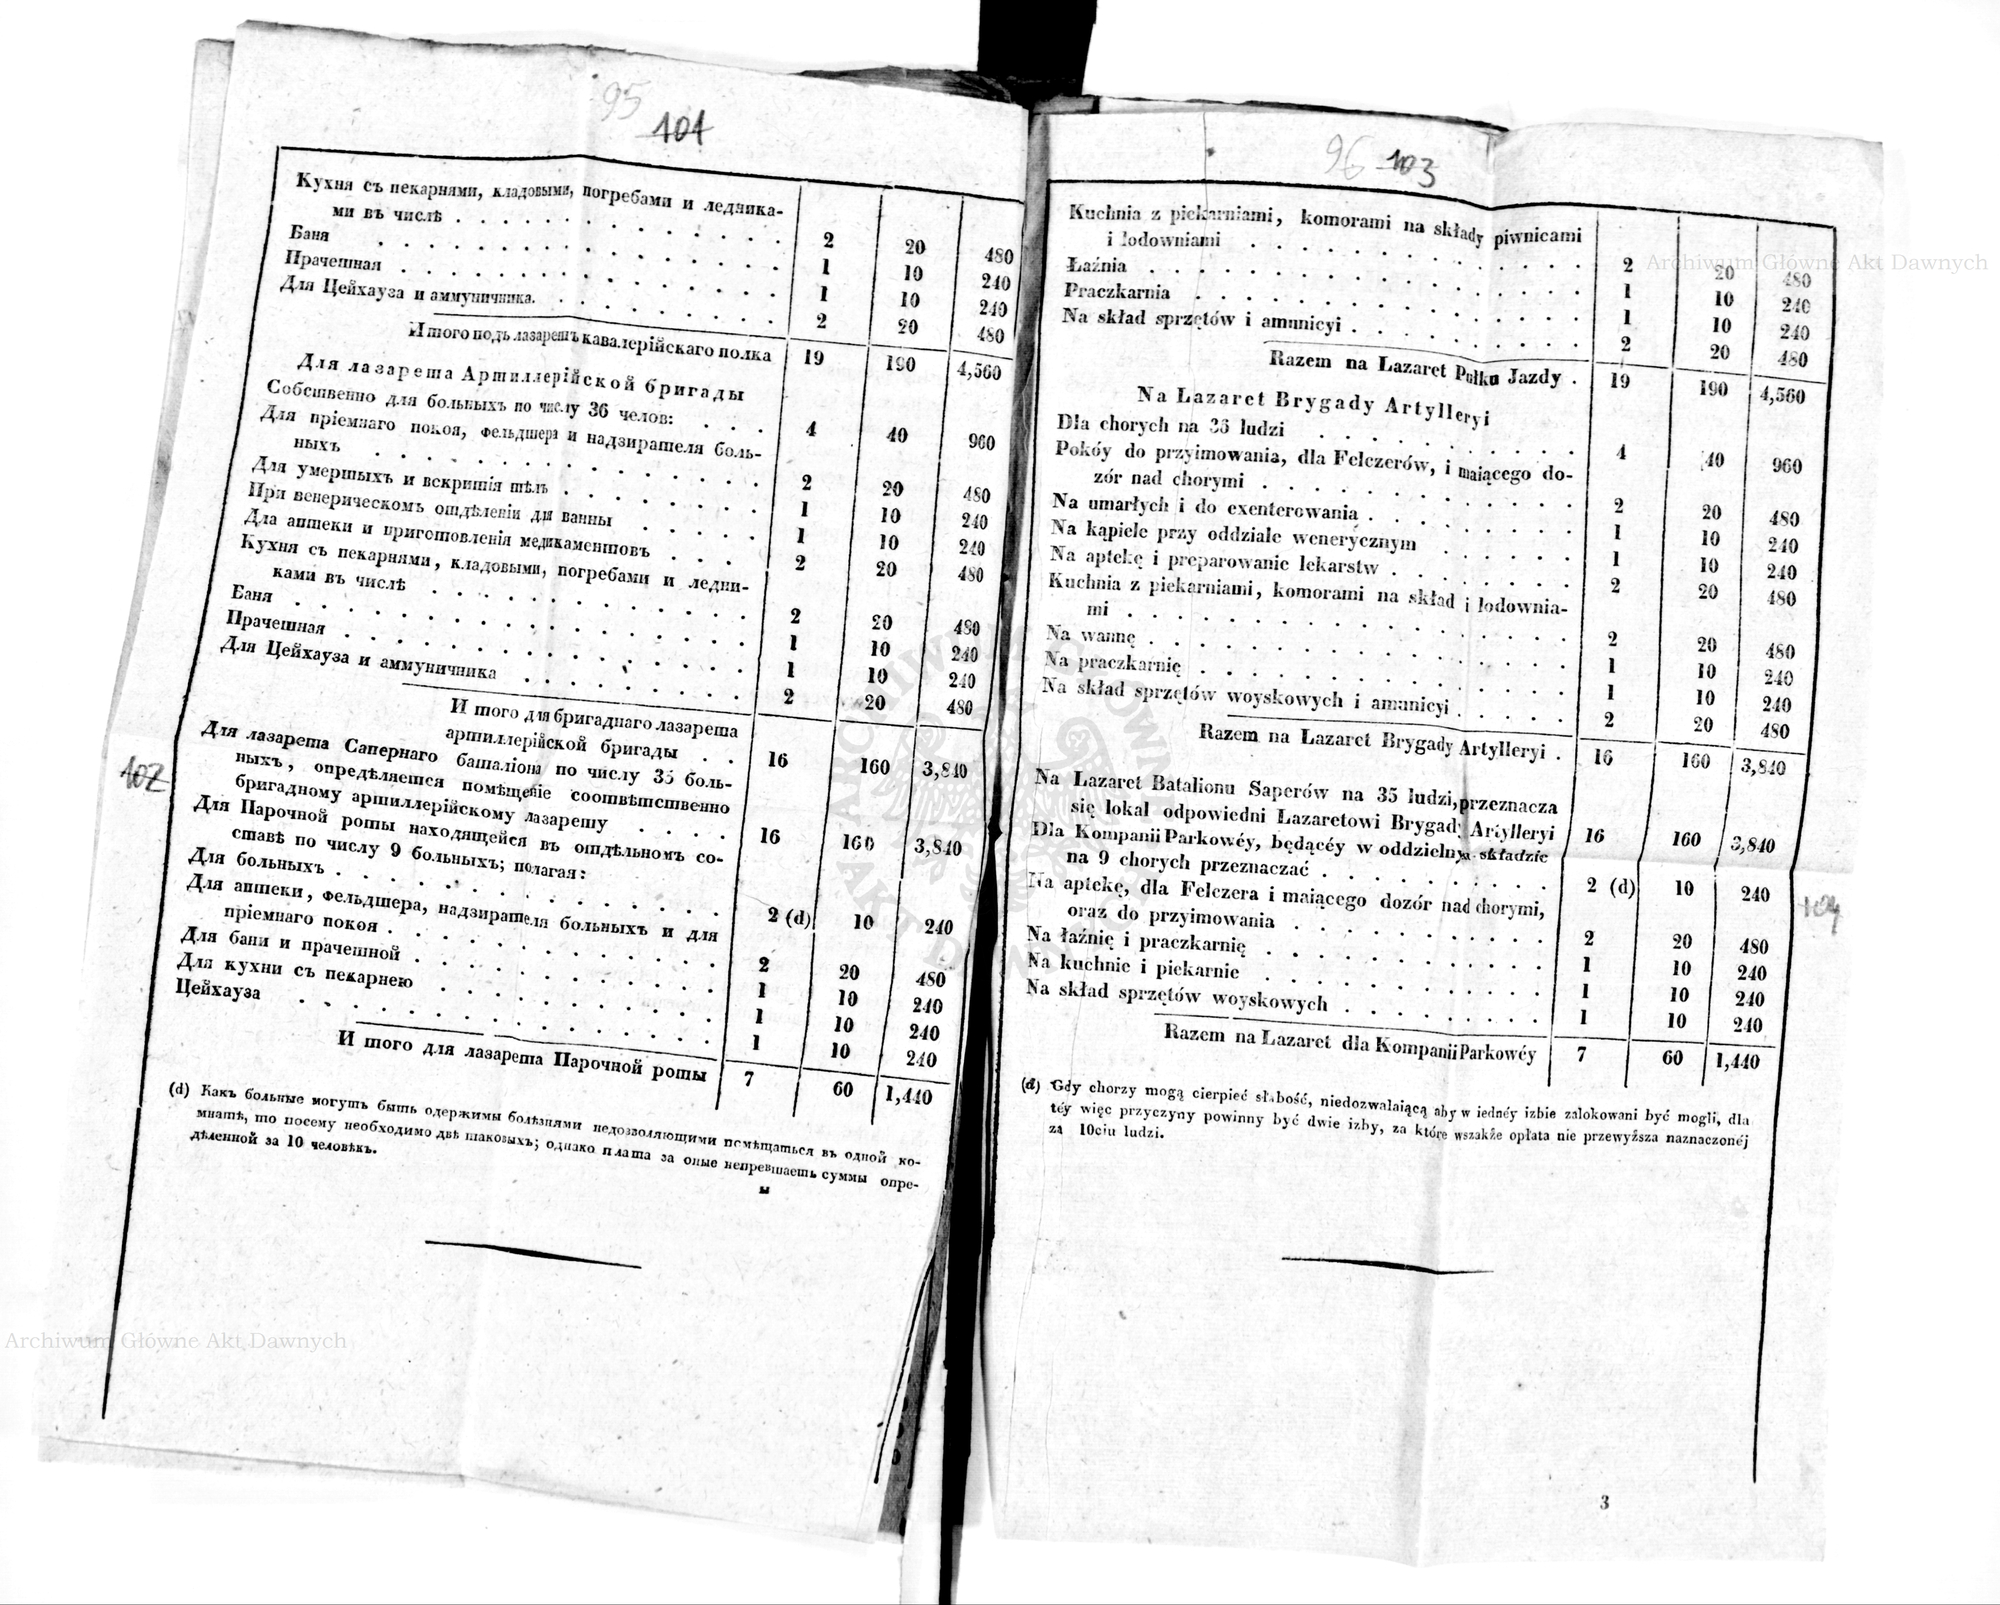 95
101
Кухня съ пекарнями, кладовыми, погребами и ледника-
ми въ числѣ . . . 2 20 480
Баня . . . 1 10 240
Прачешная . . . 1 10 240
Для Цейхауза и аммуничника. . . . 2 20 480
И того подъ лазаретъ кавалерійскаго полка 19 190 4,560
Для лазарета Артиллерійской бригады
Собственно для больныхъ по числу 36 челов: . . . 4 40 960
Для пріемнаго покоя, фельдшера и надзирателя боль-
ныхъ . . . 2 20 480
Для умершыхъ и вскрытія тѣлъ . . . 1 10 240
При венерическомъ отдѣленіи для ванны . . . 1 10 240
Для аптеки и приготовленія медикаментовъ . . . 2 20 480
Кухня съ пекарнями, кладовыми, погребами и ледни-
ками въ числѣ . . . 2 20 480
Баня . . . 1 10 240
Прачешная . . . 1 10 240
Для Цейхауза и аммуничника . . . 2 20 480
И того для бригаднаго лазарета
артиллерійской бригады . . 16 160 3,840
Для лазарета Сапернаго баталіона по числу 35 боль-
ныхъ, опредѣляется помѣщеніе соотвѣтственно
бригадному артиллерійскому лазарету . . . 16 160 3,840
Для Парочной роты находящейся въ отдѣльномъ со-
ставѣ по числу 9 больныхъ; полагая:
Для больныхъ . . . 2 (d) 10 240
Для аптеки, фельдшера, надзирателя больныхъ и для
пріемнаго покоя . . . 2 20 480
Для бани и прачешной . . . 1 10 240
Для кухни съ пекарнею . . . 1 10 240
Цейхауза . . . 1 10 240
И того для лазарета Парочной роты 7 60 1,440
(d) Какъ больные могутъ быть одержимы болѣзнями недозволяющими помѣщаться въ одной ко-
мнатѣ, то посему необходимо двѣ таковыхъ; однако плата за оные непревшаетъ суммы опре-
дѣленной за 10 человѣкъ.
ы
102
96
103
Kuchnia z piekarniami, komorami na składy piwnicami
i lodowniami . . . 2 20 480
Łaźnia . . . 1 10 240
Praczkarnia . . . 1 10 240
Na skład sprzętów i amunicyi . . . 2 20 480
Razem na Lazaret Pułku Jazdy . 19 190 4,560
Na Lazaret Brygady Artylleryi
Dla chorych na 36 ludzi . . . 4 40 960
Pokóy do przyimowania, dla Felczerów, i maiącego do-
zór nad chorymi . . . 2 20 480
Na umarłych i do exenterowania . . . 1 10 240
Na kąpiele przy oddziale wenerycznym . . . 1 10 240
Na aptekę i preparowanie lekarstw . . . 2 20 480
Kuchnia z piekarniami, komorami na skład i lodownia-
mi . . . 2 20 480
Na wannę . . . 1 10 240
Na praczkarnię . . . 1 10 240
Na skład sprzętów woyskowych i amunicyi . . . 2 20 480
Razem na Lazaret Brygady Artylleryi . 16 160 3,840
Na Lazaret Batalionu Saperów na 35 ludzi, przeznacza
się lokal odpowiedni Lazaretowi Brygady Artylleryi 16 160 3,840
Dla Kompanii Parkowéy, będącéy w oddzielnym składzie
na 9 chorych przeznaczać . . . 2 (d) 10 240
Na aptekę, dla Felczera i maiącego dozór nad chorymi,
oraz do przyimowania . . . 2 20 480
Na łaźnię i praczkarnię . . . 1 10 240
Na kuchnie i piekarnie . . . 1 10 240
Na skład sprzętów woyskowych . . . 1 10 240
Razem na Lazaret dla Kompanii Parkowéy 7 60 1,440
(d) Gdy chorzy mogą cierpieć słabość, niedozwalaiącą aby w iednéy izbie zalokowani być mogli, dla
téy więc przyczyny powinny być dwie izby, za które wszakże opłata nie przewyższa naznaczonéj
za 10ciu ludzi.
104
3
Archiwum Główne Akt Dawnych
Archiwum Główne Akt Dawnych